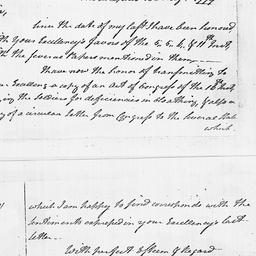 Since the date of my last I have been honoured
with your Excellency's favors of the 5. 5. 6. & 11th Inst,
with the several Papers mentioned in them.
I have now the honor of transmitting to
your Excellency a copy of an act of Congress of the 10th Inst,
the Soldiers for deficiencies in cloathing, & also a
copy of a circular letter from Congress to the several States
which
which I am happy to find corresponds with the
sentiments expressed in your Excellency's last
letter.
With perfect Esteem & Regard